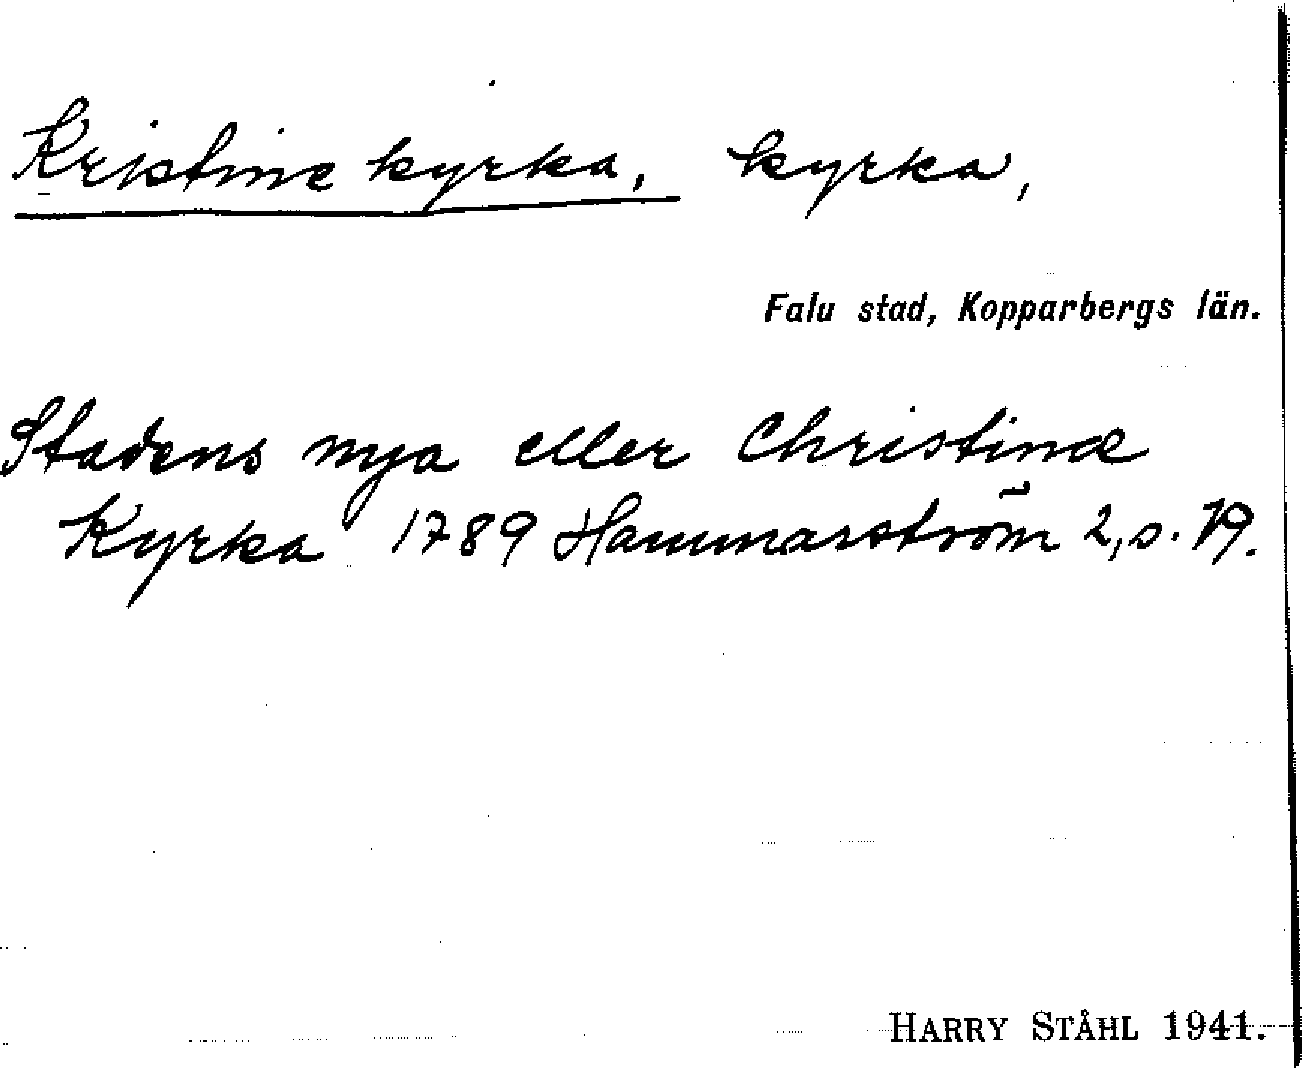 Kristine kyrka, kyrka,
Falu stad, Kopparbergs län.
Stadens nya eller Christinæ
Kyrka 1789 Hammarström 2, s. 79.
HARRY STÅHL 1941.